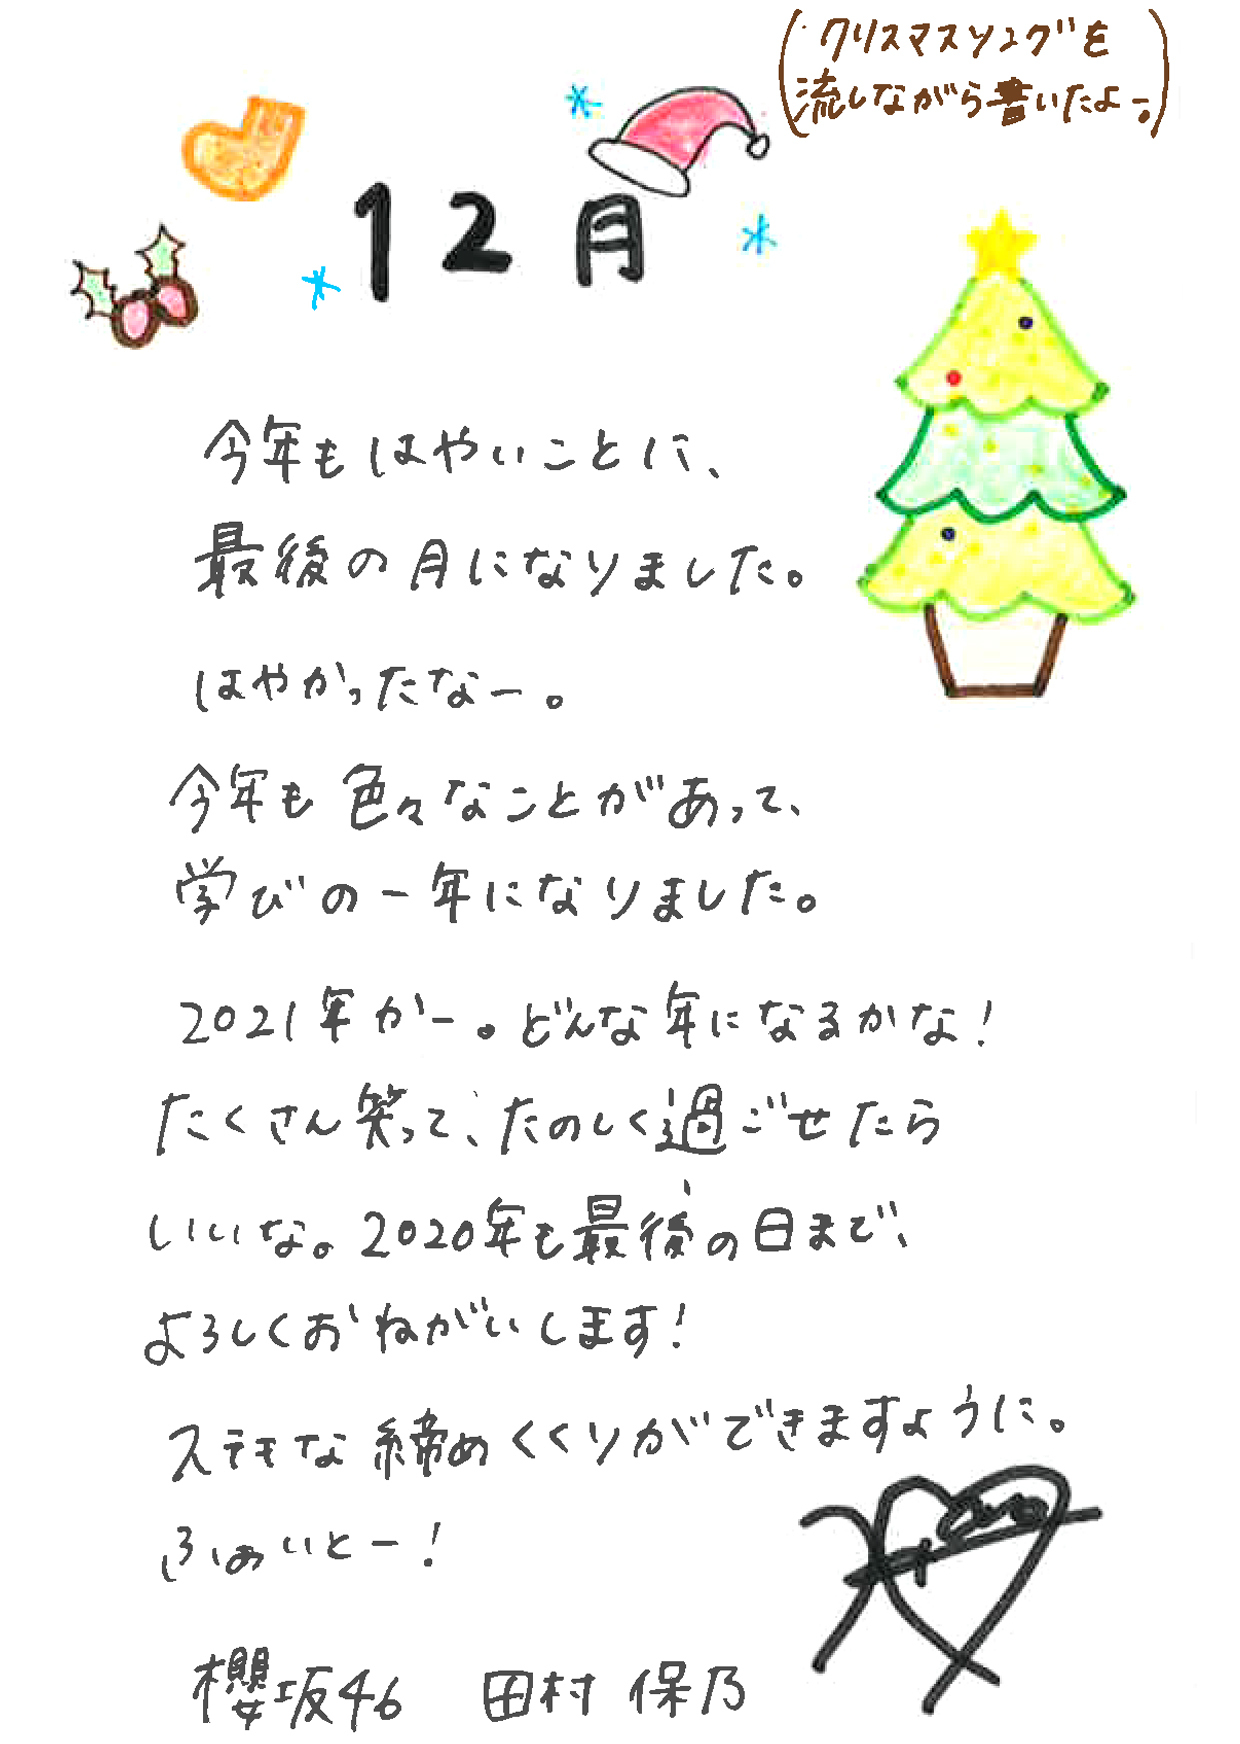 (クリスマスソングを
流しながら書いたよー。)
12月
今年もはやいことに、
最後の月になりました。
はやかったなー。
今年も色々なことがあって、
学びの一年になりました。
2021年かー。どんな年になるかな!
たくさん笑って、たのしく過ごせたら
いいな。2020年も最後の日まで、
よろしくおねがいします!
ステキな締めくくりができますように。
ふぁいとー!
櫻坂46 田村 保乃